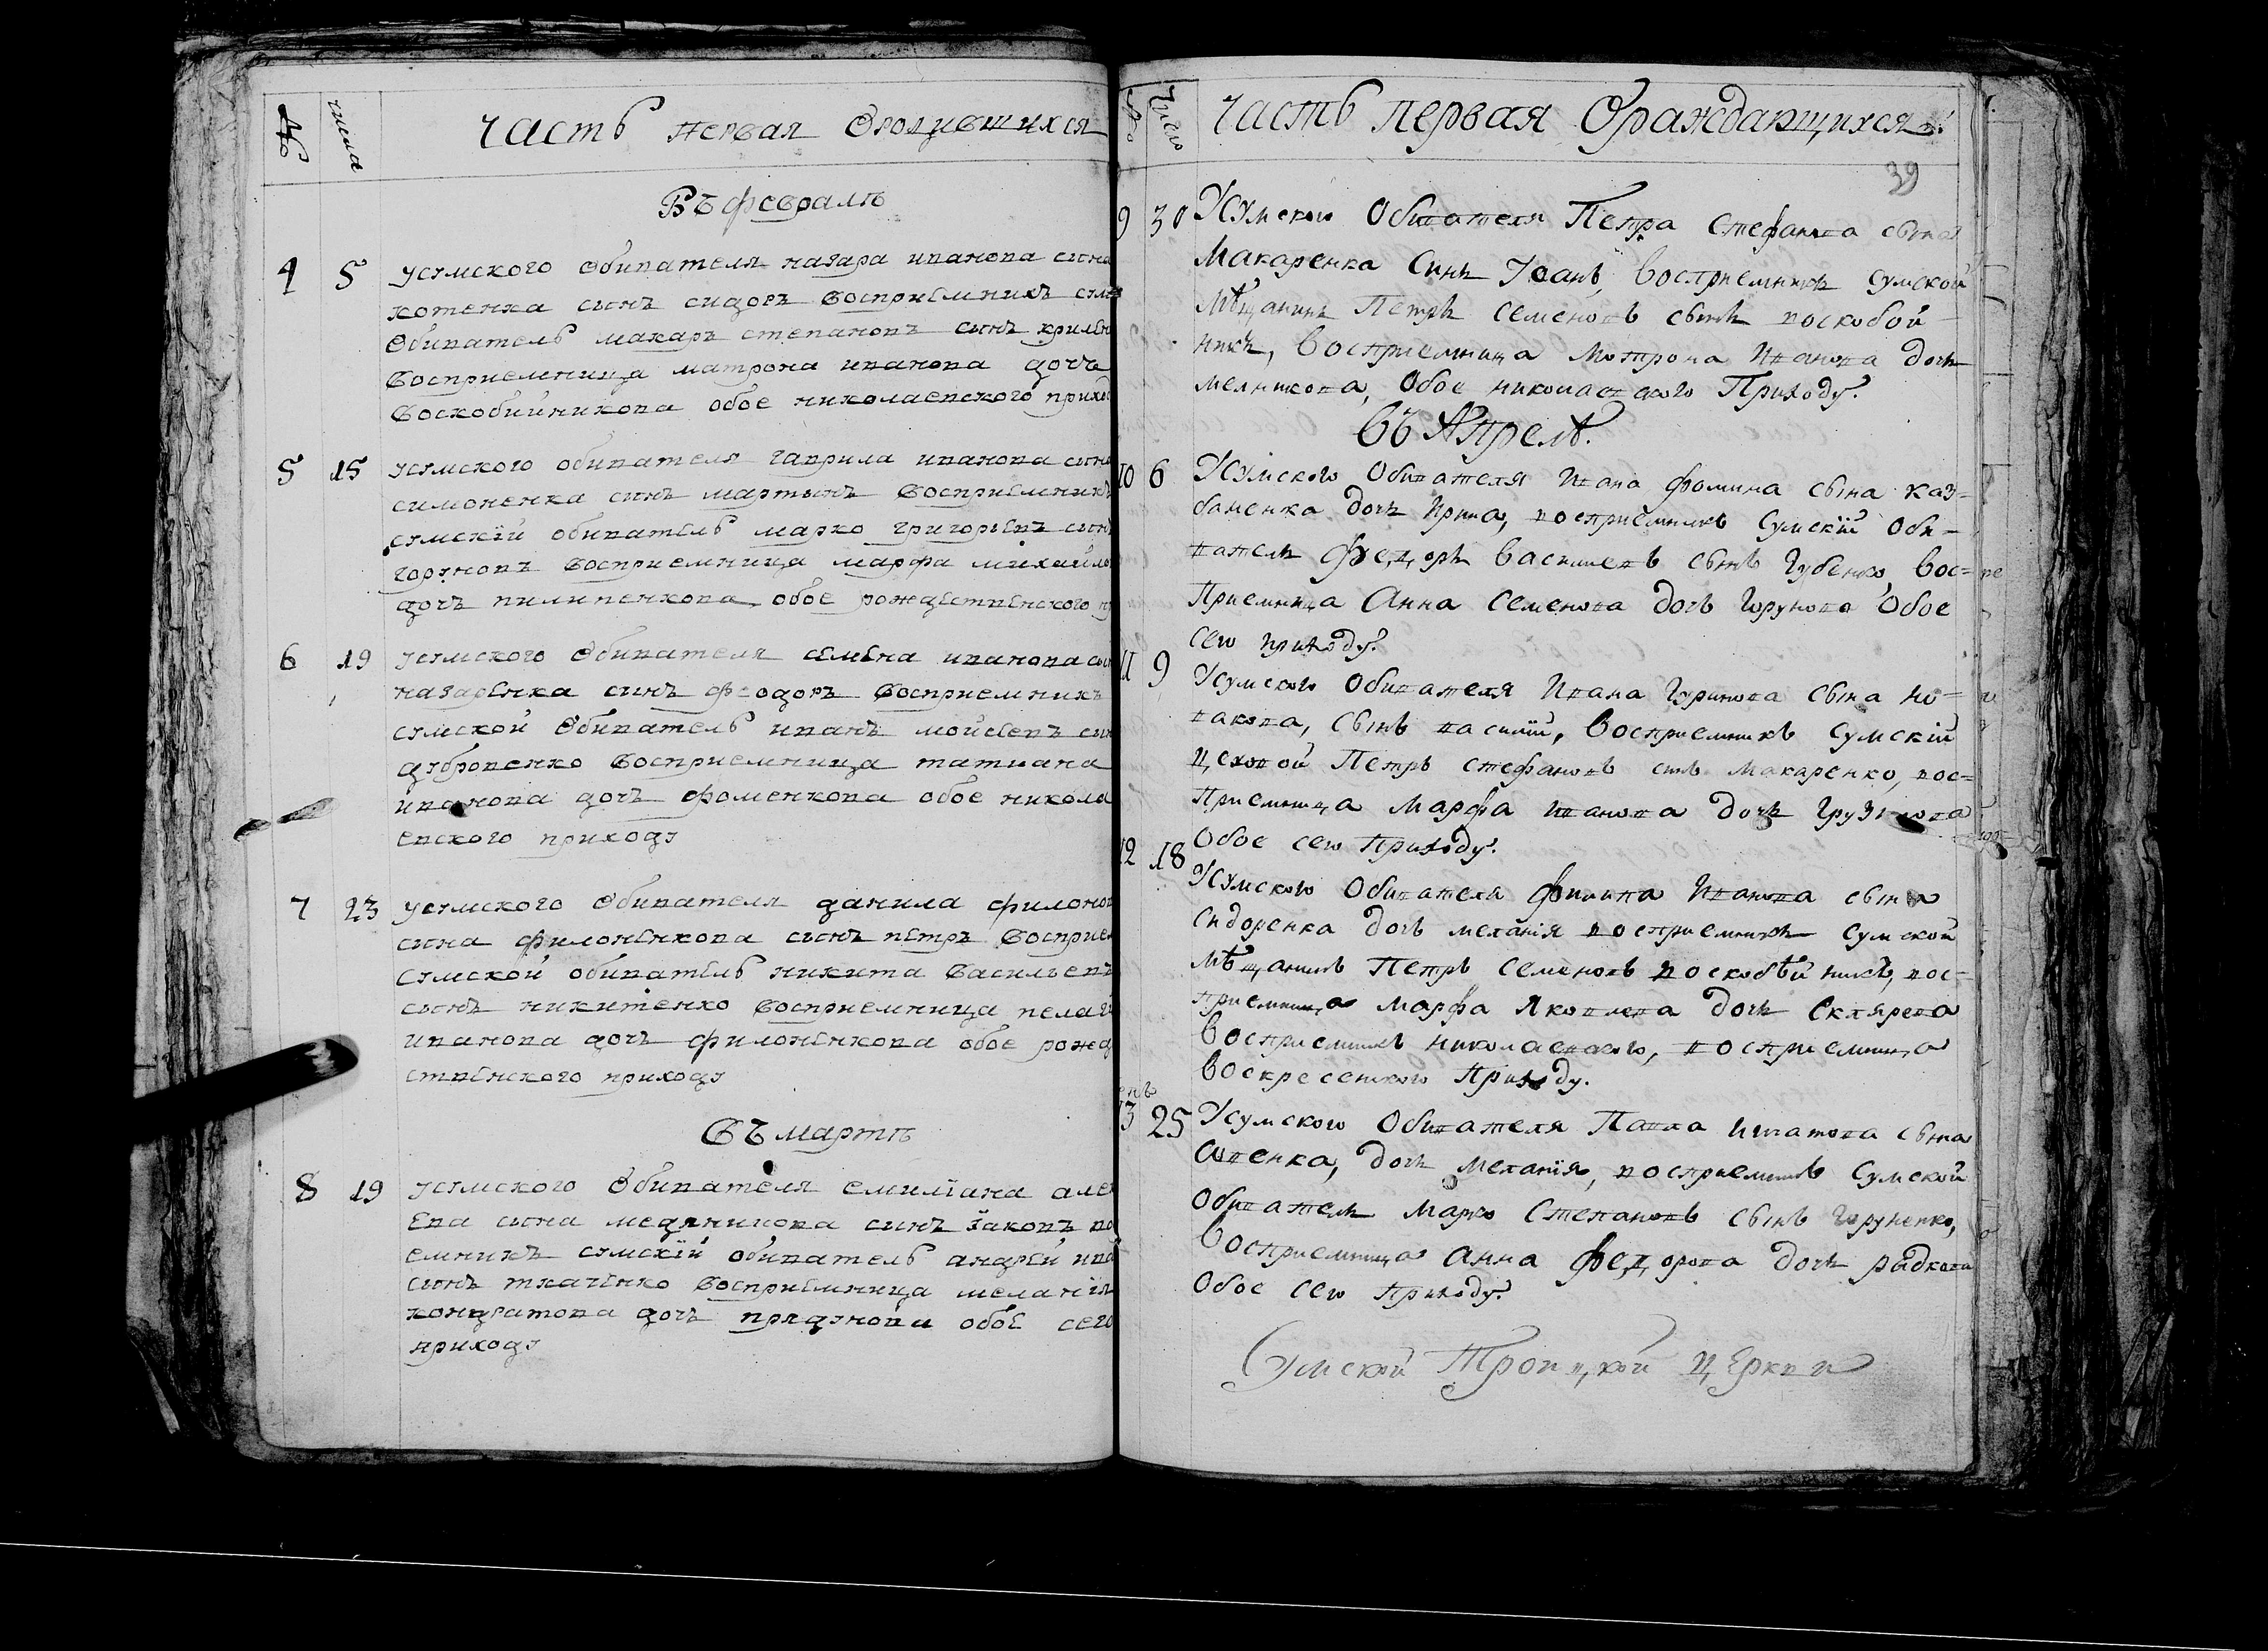 № числа Часть первая Ородившихся
Въ февралѣ
4 5 усумского обивателя назара иванова сина
котенка сынъ сидоръ восприемникъ сум
обиватель макаръ степановъ сынъ крилен
восприемница матрона иванова дочъ
воскобийникова обое николаевского прихо
5 15 усумского обивателя гаврила иванова сина
симоненка синъ мартынъ восприемникъ
сумскїй обиватель марко григорьевъ сынъ
горуновъ восприемница марфа михайло
дочъ пилипенкова обое рождественского п
6 19 усумского обивателя семена иванова сын
назаренка синъ феодоръ восприемникъ
сумской обиватель иванъ мойсеевъ син
дубровенко восприемница татиана
иванова дочъ фоменкова обое никола
евского приходу
7 23 усумского обивателя данила филонов
сина филоненкова сынъ петръ восприем
сумской обиватель никита васильевъ
сынъ никитенко восприемница пелагі
иванова дочъ филоненкова обое рожд
ственского приходу
Въ мартѣ
8 19 усумского обивателя емилїана але
ева сына медяникова синъ їаковъ во
емникъ сумскїй обиватель андрей ива
синъ ткаченко восприемница меланїя
кондратова дочъ прядунова обое сего
приходу
№ Число Часть первая Ораждающихся:
39
9 30 Усумского Обивателя Петра Стефанова сына
Макаренка Синъ Іоанъ, восприемникъ сумской
мѣщанинъ Петръ Семеновъ сынъ воскобой-
никъ, восприемница Мотрона Иванова дочь
мелникова, Обое николаевского Приходу.
Въ Апрелѣ.
10 6 Усумского Обивателя Ивана Фомина сына каз-
баненка дочь Ирина, восприемникъ Сумскїй Оби-
ватель Федоръ Василиевъ сынъ Губенко, вос-
приемница Анна Семенова дочь Горунова Обое
сего приходу.
11 9 Усумского Обивателя Ивана Гуринова сына но-
вакова, сынъ василїй, восприемникъ Сумскїй
цеховой Петръ Стефановъ синъ Макаренко, вос-
приемница Марфа Иванова дочь
Обое сего Приходу.
12 18 Усумского Обивателя Филипа Иванова сына
Сидоренка дочь меланїя восприемникъ Сумской
мѣщанинъ Петръ Семеновъ воскобойникъ, вос-
приемница Марфа Яковлева дочь Склярева
восприемникъ николаевского, восприемница
воскресенского Приходу.
13 25 Усумского Обивателя Павла Игнатова сына
дочь Меланїя, восприемникъ Сумской
Обиватель Марко Степановъ сынъ Горуненко,
восприемница Анна Федорова дочь радкова
Обое сего Приходу.
Сумской Троицкой Церкви